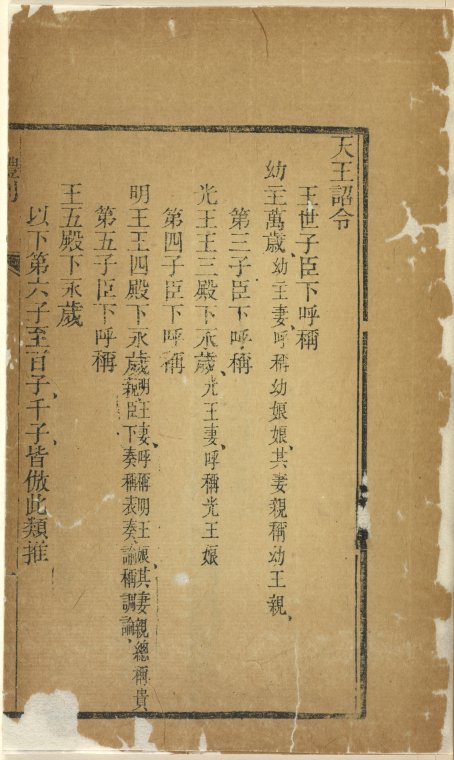 天王詔令
王世子臣下呼稱
幼主萬歲、幼主妻、呼稱幼娘娘、其妻親稱幼王親、
第三子臣下呼稱
光王王三殿下永歲、光王妻、呼稱光王娘
第四子臣下呼稱
明王王四殿下永歲明王妻、呼稱明王娘、其妻親總稱貴
親、臣下奏稱表奏、諭稱調諭、
第五子臣下呼稱
王五殿下永歲
以下第六子至百子、千子、皆倣此類推